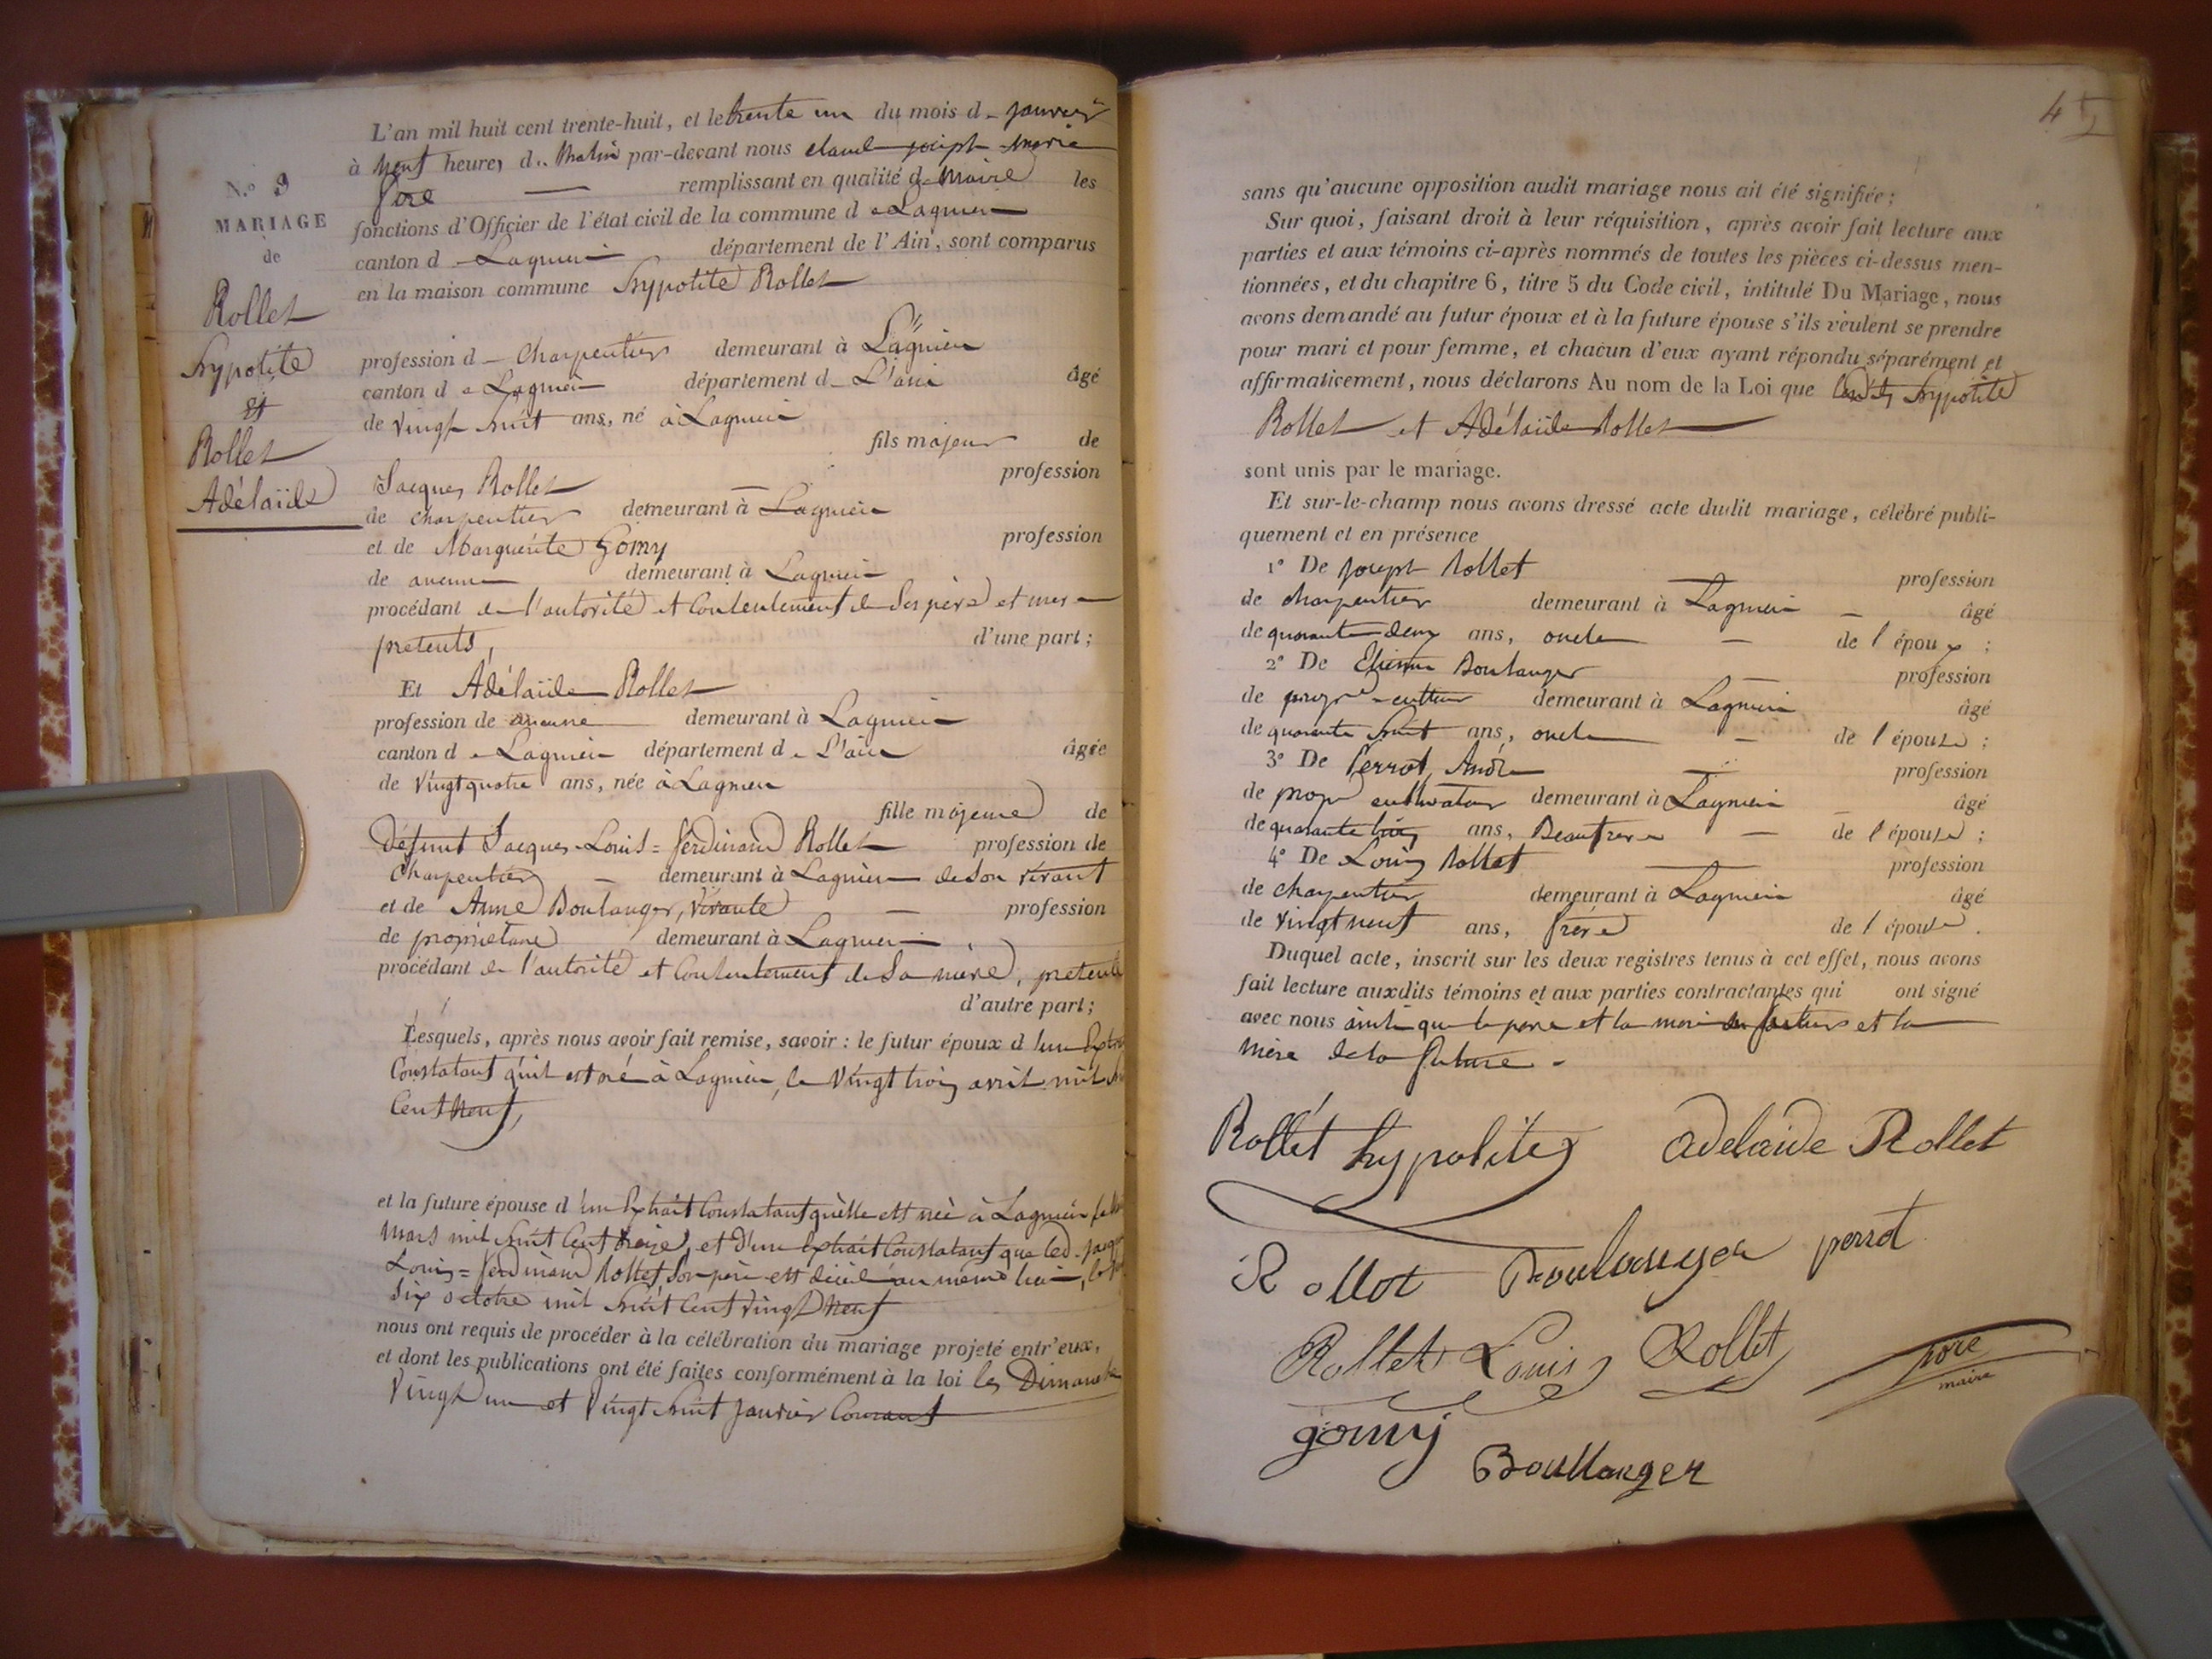 N.º 9
MARIAGE
de
Rollet
hypolite
et
Rollet
Adélaïde
L'an mil huit cent trente-huit, et le trente un du mois de janvier
à Neuf heures du Matin par-devant nous claude joseph marie
remplissant en qualité de Maire les
fonctions d'Officier de l'état civil de la commune de Lagnieu
canton de Lagnieu département de l'Ain, sont comparus
en la maison commune hypolite Rollet
profession de Charpentier demeurant à Lagnieu
canton de Lagnieu département de L'ain âgé
de vingt huit ans, né à Lagnieu
fils majeur de
Jacques Rollet profession
de charpentier demeurant à Lagnieu
et de Marguerite Gomy profession
de aucune demeurant à Lagnieu
procédant de l'autorité et Contentement de Ses père et mere
presents, d'une part;
Et Adélaïde Rollet
profession de aucune demeurant à Lagnieu
canton de Lagnieu département de L'ain âgée
de Vingt quatre ans, née à Lagnieu
fille majeure de
Défunt Jacques-Louis=ferdinand Rollet profession de
Charpentier demeurant à Lagnieu de son vivant
et de Anne Boulanger, vivante profession
de propriétaire demeurant à Lagnieu
procédant de l'autorité et Contentement de Sa mère, presente
d'autre part;
Lesquels, après nous avoir fait remise, savoir: le futur époux d'un
Constatant qu'il est né à Lagnieu, le Vingt trois avril mil
Cent Neuf,
et la future épouse d'un Extrait Constatant qu'elle est née à Lagnieu
Mars mil huit Cent treize, et d'un Extrait Constatant que led.
Louis=ferdinand Rollet Son père est décédé au même lieu,
Six octobre mil huit Cent vingt Neuf
nous ont requis de procéder à la célébration du mariage projeté entr'eux,
et dont les publications ont été faites conformément à la loi les Dimanche
Vingt un et Vingt huit janvier Courant
45
sans qu'aucune opposition audit mariage nous ait été signifiée;
Sur quoi, faisant droit à leur réquisition, après avoir fait lecture aux
parties et aux témoins ci-après nommés de toutes les pièces ci-dessus men-
tionnées, et du chapitre 6, titre 5 du Code civil, intitulé Du Mariage, nous
avons demandé au futur époux et à la future épouse s'ils veulent se prendre
pour mari et pour femme, et chacun d'eux ayant répondu séparément et
affirmativement, nous déclarons Au nom de la Loi que hypolite
Rollet et Adélaïde Rollet
sont unis par le mariage.
Et sur-le-champ nous avons dressé acte dudit mariage, célébré publi-
quement et en présence
1º De joseph Rollet profession
de charpentier demeurant à Lagnieu âgé
de quarante deux ans, oncle de l'époux;
2º De Etienne Boulanger profession
de demeurant à Lagnieu âgé
de quarante huit ans, oncle de l'épouse;
3º De Perrot, André profession
de prop cultivateur demeurant à Lagnieu âgé
de quarante ans, Beaufrere de l'épouse;
4º De Louis Rollet profession
de charpentier demeurant à Lagnieu âgé
de vingt neuf ans, frère de l'épouse.
Duquel acte, inscrit sur les deux registres tenus à cet effet, nous avons
fait lecture auxdits témoins et aux parties contractantes qui ont signé
avec nous ainsi que le père et la mère du futur et la
Mère de la future.
Rollet hypolite adelaide Rollet
Rollot Boulanger perrot
Rollet Louis Rollet
maire
gomy
Boullanger